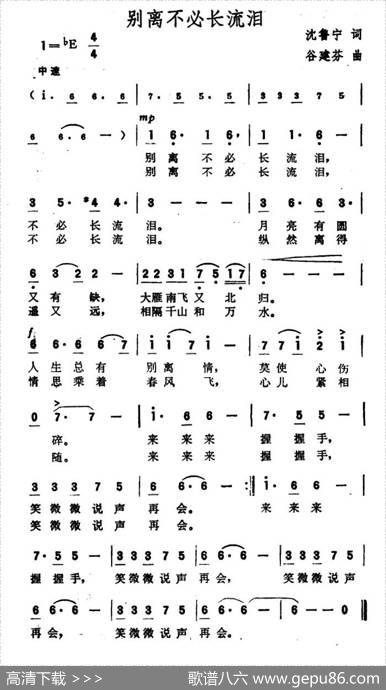 别离不必长流泪
沈鲁宁 词
1=♭E 4/4
谷建芬 曲
中速
(i· 6 6· 6 | 7· 5 5· 5 | i· 6 6· 6 |
mp
6 6·6 —) | 1 6· 1 6· | 1 1· 6 — |
别离 不必 长流泪,
别离 不必 长流泪,
3 5· #4 4· | 3 — — — | 3 3· 1 3 |
不必长流泪。 月亮有圆
不必长流泪。 纵然离得
6 3 2 2 — | 2231 7 5 17 | 6 — — — |
又有缺, 大雁南飞又北归。
遥又远, 相隔千山和万水。
f
人生总有 别离情, 莫使心伤
情思乘着 春风飞, 心儿紧相
0 7· 7 — | i· 6 6 — | 7· 5 5 — |
碎。 来来来 握握手,
随。 来来来 握握手,
3 3 3 7 5 | 6 6·6 — :| i· 6 6 — |
笑微微说声再会。 来来来
笑微微说声再会。
7· 5 5 — | 333 7 5 | 6 6·6 — | 333 7 5 |
握握手, 笑微微说声 再会, 笑微微说声
6 6·6 — | 333 7 5 | 6 6·6 — | 6 — — 0 ‖
再会, 笑微微说声 再会。
高清下载 >>>
歌谱八六 www.gepu86.com